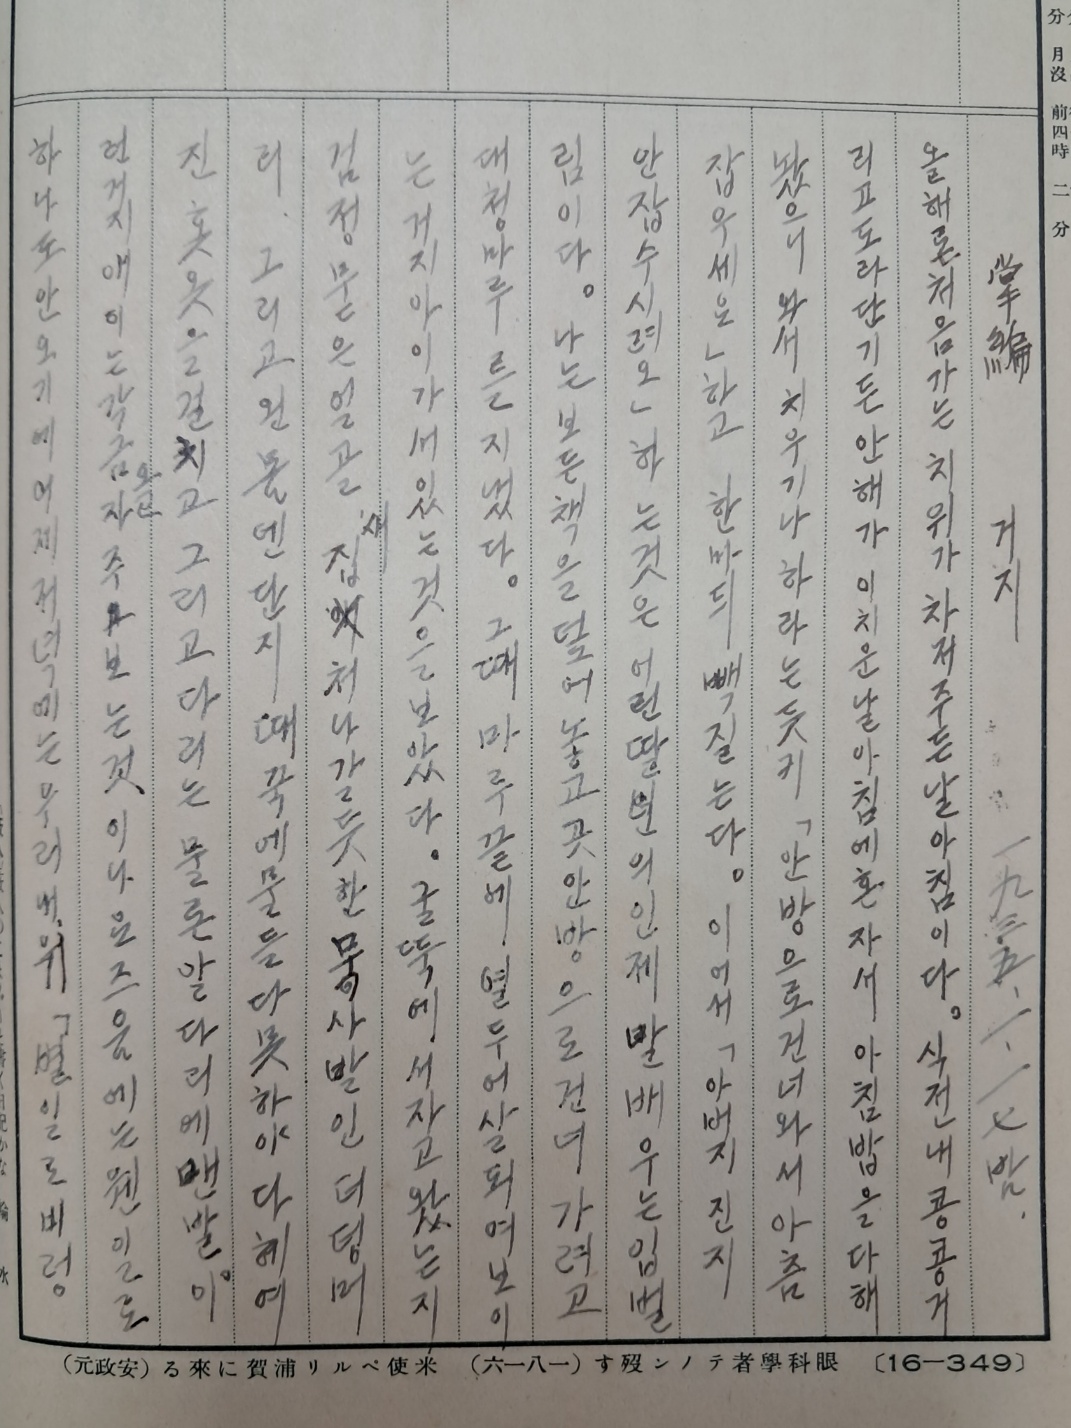 掌編 거지 一九三五、一、一七밤.
올해론처음가는 치위가 차저주든날아침이다。식전내콩콩거
리고도라단기든안해가 이치운날아침에혼자서 아침밥을다해
놨으니 와서 치우기나하라는듯키「안방으로건너와서아츰
잡우세요」하고 한마듸 빽질는다。이어서「아버지진지
안잡수시려오」하는것은 어린딸년의인제 말배우는입벌
림이다。나는보든책을덮어놓고곳안방으로건너가려고
대청마루를지냈다。그때 마루끝에 열두어살되여보이
는거지아이가서있는것을보았다。굴뚝에서자고왔는지
검정묻은얼골 집새처나갈듯한 사발인더텁머
리. 그리고왼몸덴단지 때꾹에물들다못하야다헤여
진홋옷을걸치고그리고다리는물론알다리에맨발이。
런거지애이는각금와 자주보는것이나요즈음에는웬일로
하나도안오기에어제저녁에는우리내위「별일로비렁
眼科學者テノン歿す (一八一六) 米使ペルリ浦賀に來る(安政元) 〔16—349〕
分
月沒
前四時
二
分